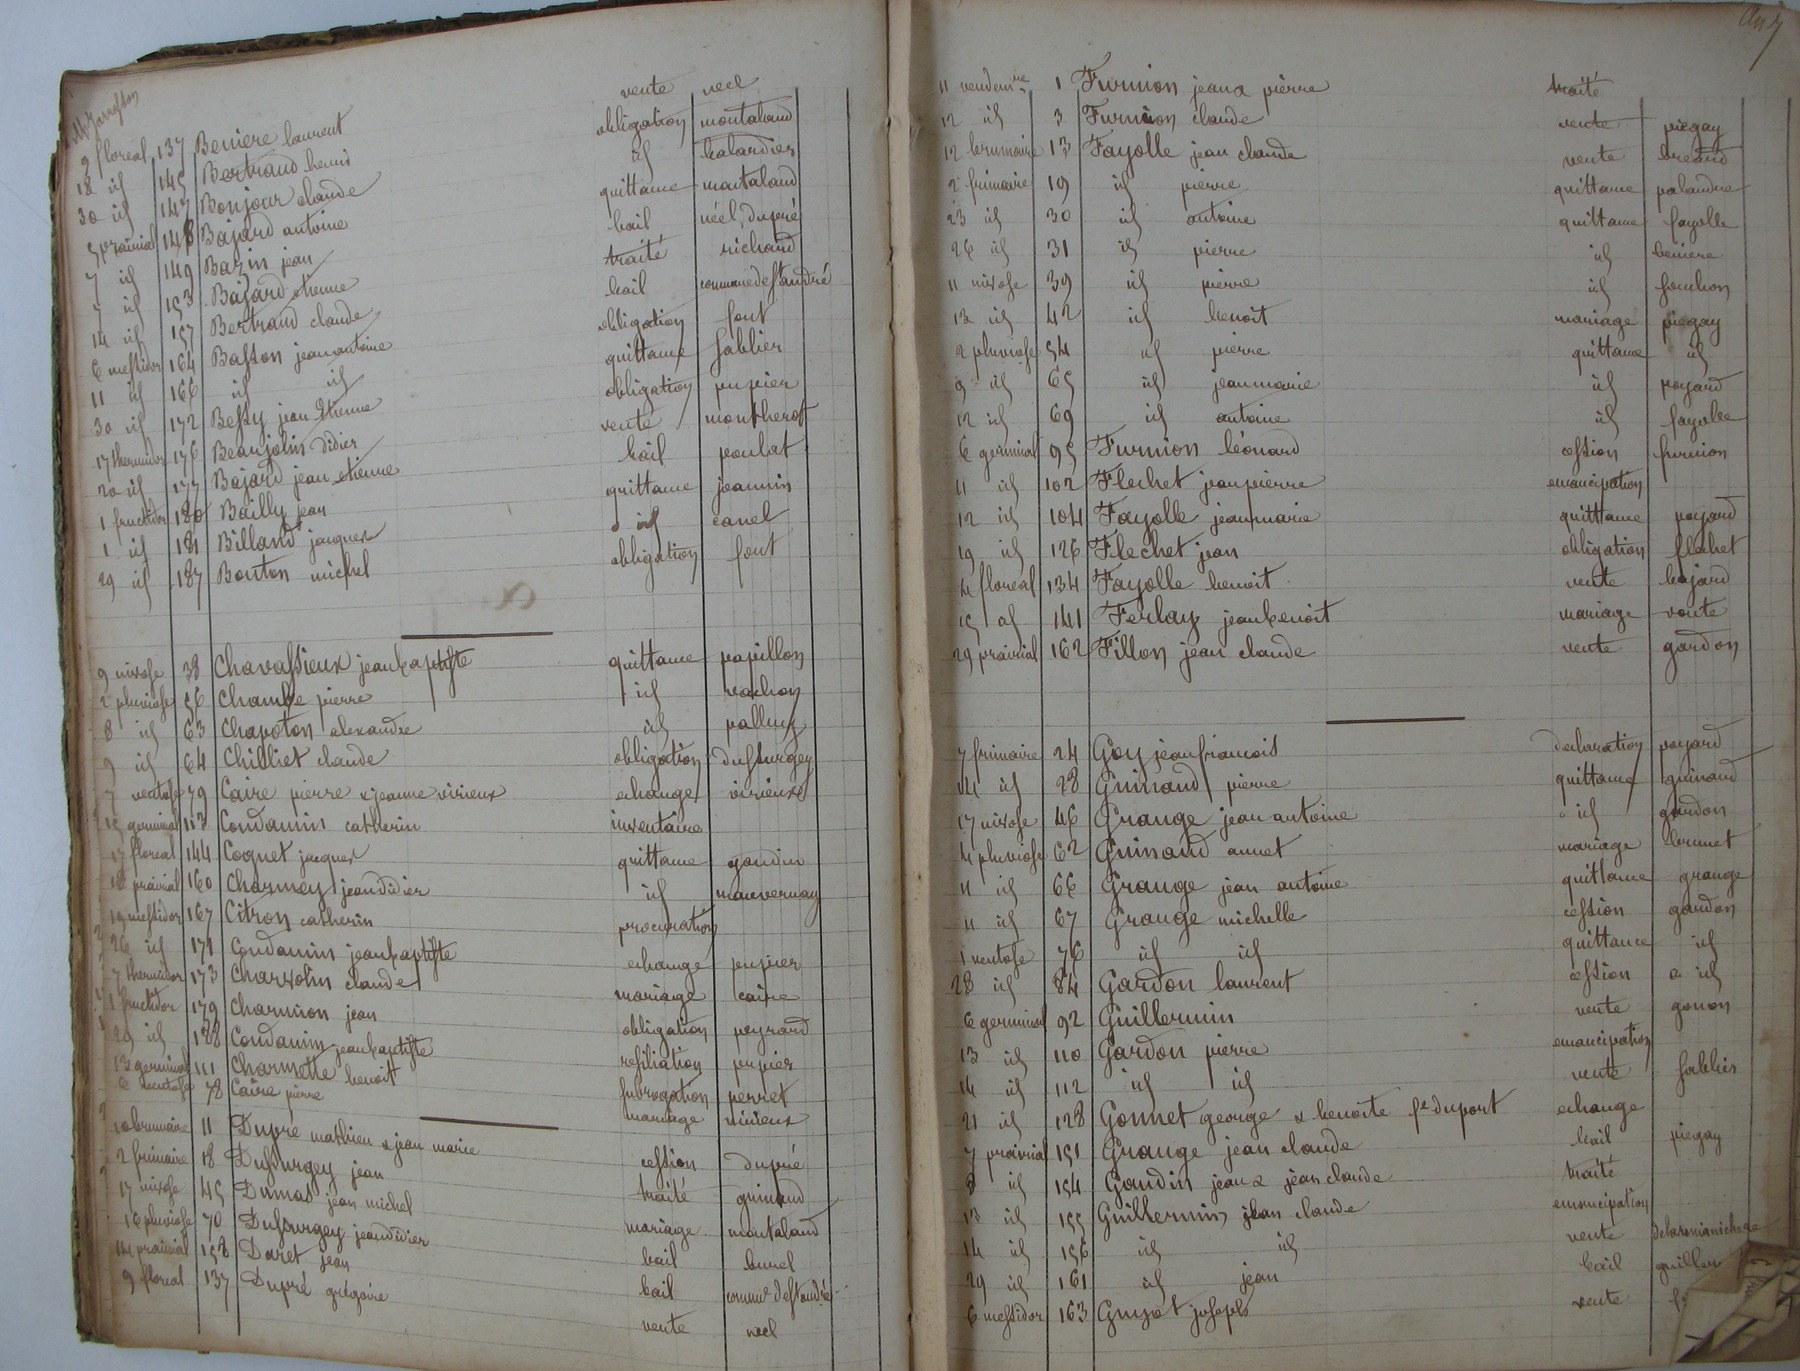 9 floreal 137 Beniere laurent vente neel
18 id 145 Bertrand denis obligation montaland
30 id 147 Bonjour claude id balardier
5 prairial 148 Bajard antoine quittance montaland
7 id 149 Bazin jean bail néel, dupré
7 id 153 Bajard etienne traité richard
14 id 157 Bertrand claude bail commune de st andré
6 messidor 164 Basson jean antoine obligation font
11 id 166 id id quittance sablier
30 id 172 Bessy jean etienne obligation pupier
17 thermidor 176 Beaujolin didier vente montherot
20 id 177 Bajard jean etienne bail poulat
1 fructidor 180 Bailly jean quittance jeannin
1 id 181 Billand jacques id canel
29 id 187 Bouton michel obligation font
9 nivose 38 Chavassieux jean baptiste quittance papillon
2 pluviose 56 Chambe pierre id vachon
8 id 63 Chapoton alexandre id palluy
9 id 64 Chilliet claude obligation dussurgey
7 ventose 79 Caire pierre & jeanne virieux echange virieux
15 germinal 113 Condamin catherin inventaire
17 floreal 144 Coquet jacques quittance gaudin
18 prairial 160 Charmey jean didier id mauvernay
19 messidor 167 Citron catherin procuration
26 id 171 Condamin jean baptiste echange pupier
7 thermidor 173 Charvolin claude mariage caire
1 fructidor 179 Charmion jean obligation peyrard
29 id 188 Condamin jean baptiste resiliation pupier
13 germinal 111 Charmette benoit subrogation perret
6 ventose 78 Caire pierre mariage virieux
10 brumaire 11 Dupre mathieu & jean marie cession dupré
2 frimaire 18 Dussurgey jean traité guinand
17 nivose 45 Dumas jean michel mariage montaland
16 pluviose 70 Dussurgey jean didier bail burel
14 prairial 158 Duret jean bail commune de st andré
9 floreal 137 Dupré grégoire vente neel
an 7
11 vendemre 1 Furnion jean & pierre traité
12 id 3 Furnion claude vente piegay
12 brumaire 13 Fayolle jean claude vente breand
2 frimaire 19 id pierre quittance palandre
23 id 30 id antoine quittance fayolle
26 id 31 id pierre id beniere
11 nivose 39 id pierre id fouchon
13 id 42 id benoit mariage piegay
2 pluviose 54 id pierre quittance id
9 id 65 id jean marie id poyard
12 id 69 id antoine id fayolle
6 germinal 95 Furnion léonard cession furnion
11 id 102 Flechet jean pierre emancipation
12 id 104 Fayolle jean marie quittance poyard
19 id 126 Flechet jean obligation flechet
4 floreal 134 Fayolle benoit vente bajard
15 id 141 Ferlay jean benoit mariage voute
29 prairial 162 Fillon jean claude vente gardon
7 frimaire 24 Goy jean francois declaration poyard
14 id 28 Guinand pierre quittance guinand
17 nivose 46 Grange jean antoine id gardon
4 pluviose 62 Guinand annet mariage brunet
11 id 66 Grange jean antoine quittance grange
11 id 67 Grange michelle cession gardon
1 ventose 76 id id quittance id
28 id 84 Gardon laurent cession id
6 germinal 92 Guillermin vente gonon
13 id 110 Gardon pierre emancipation
14 id 112 id id vente sablier
21 id 128 Gonnet george & benoite fe duport echange
7 prairial 151 Grange jean claude bail piegay
8 id 154 Gaudin jean & jean claude traité
13 id 155 Guillermin jean claude emancipation
14 id 156 id id vente
29 id 161 id jean bail
6 messidor 163 Guyot joseph vente